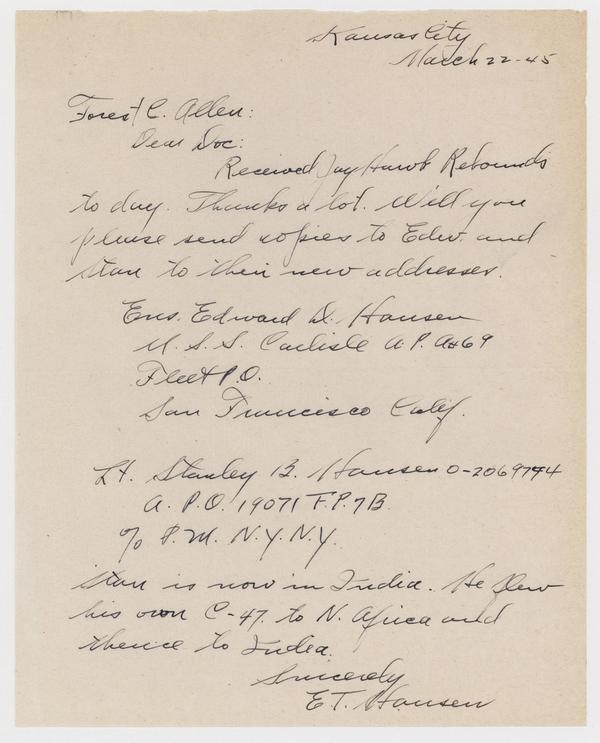 Kansas City
March 22-45
Forest C. Allen:
Dear Doc:
Received Jay Hawk Rebounds
to day. Thanks a lot. Will you
please send copies to Edw. and
Stan to their new addresses.
Ens. Edward D. Hansen
U.S.S. Carlisle A.P.A #69
Fleet P.O.
San Francisco Calif.
Lt. Stanley B. Hansen O-2069744
A.P.O. 19071 F.P.7B
c/o P.M. N.Y. N.Y.
Stan is now in India. He flew
his own C-47. to N. Africa and
thence to India.
Sincerely
E.T. Hansen